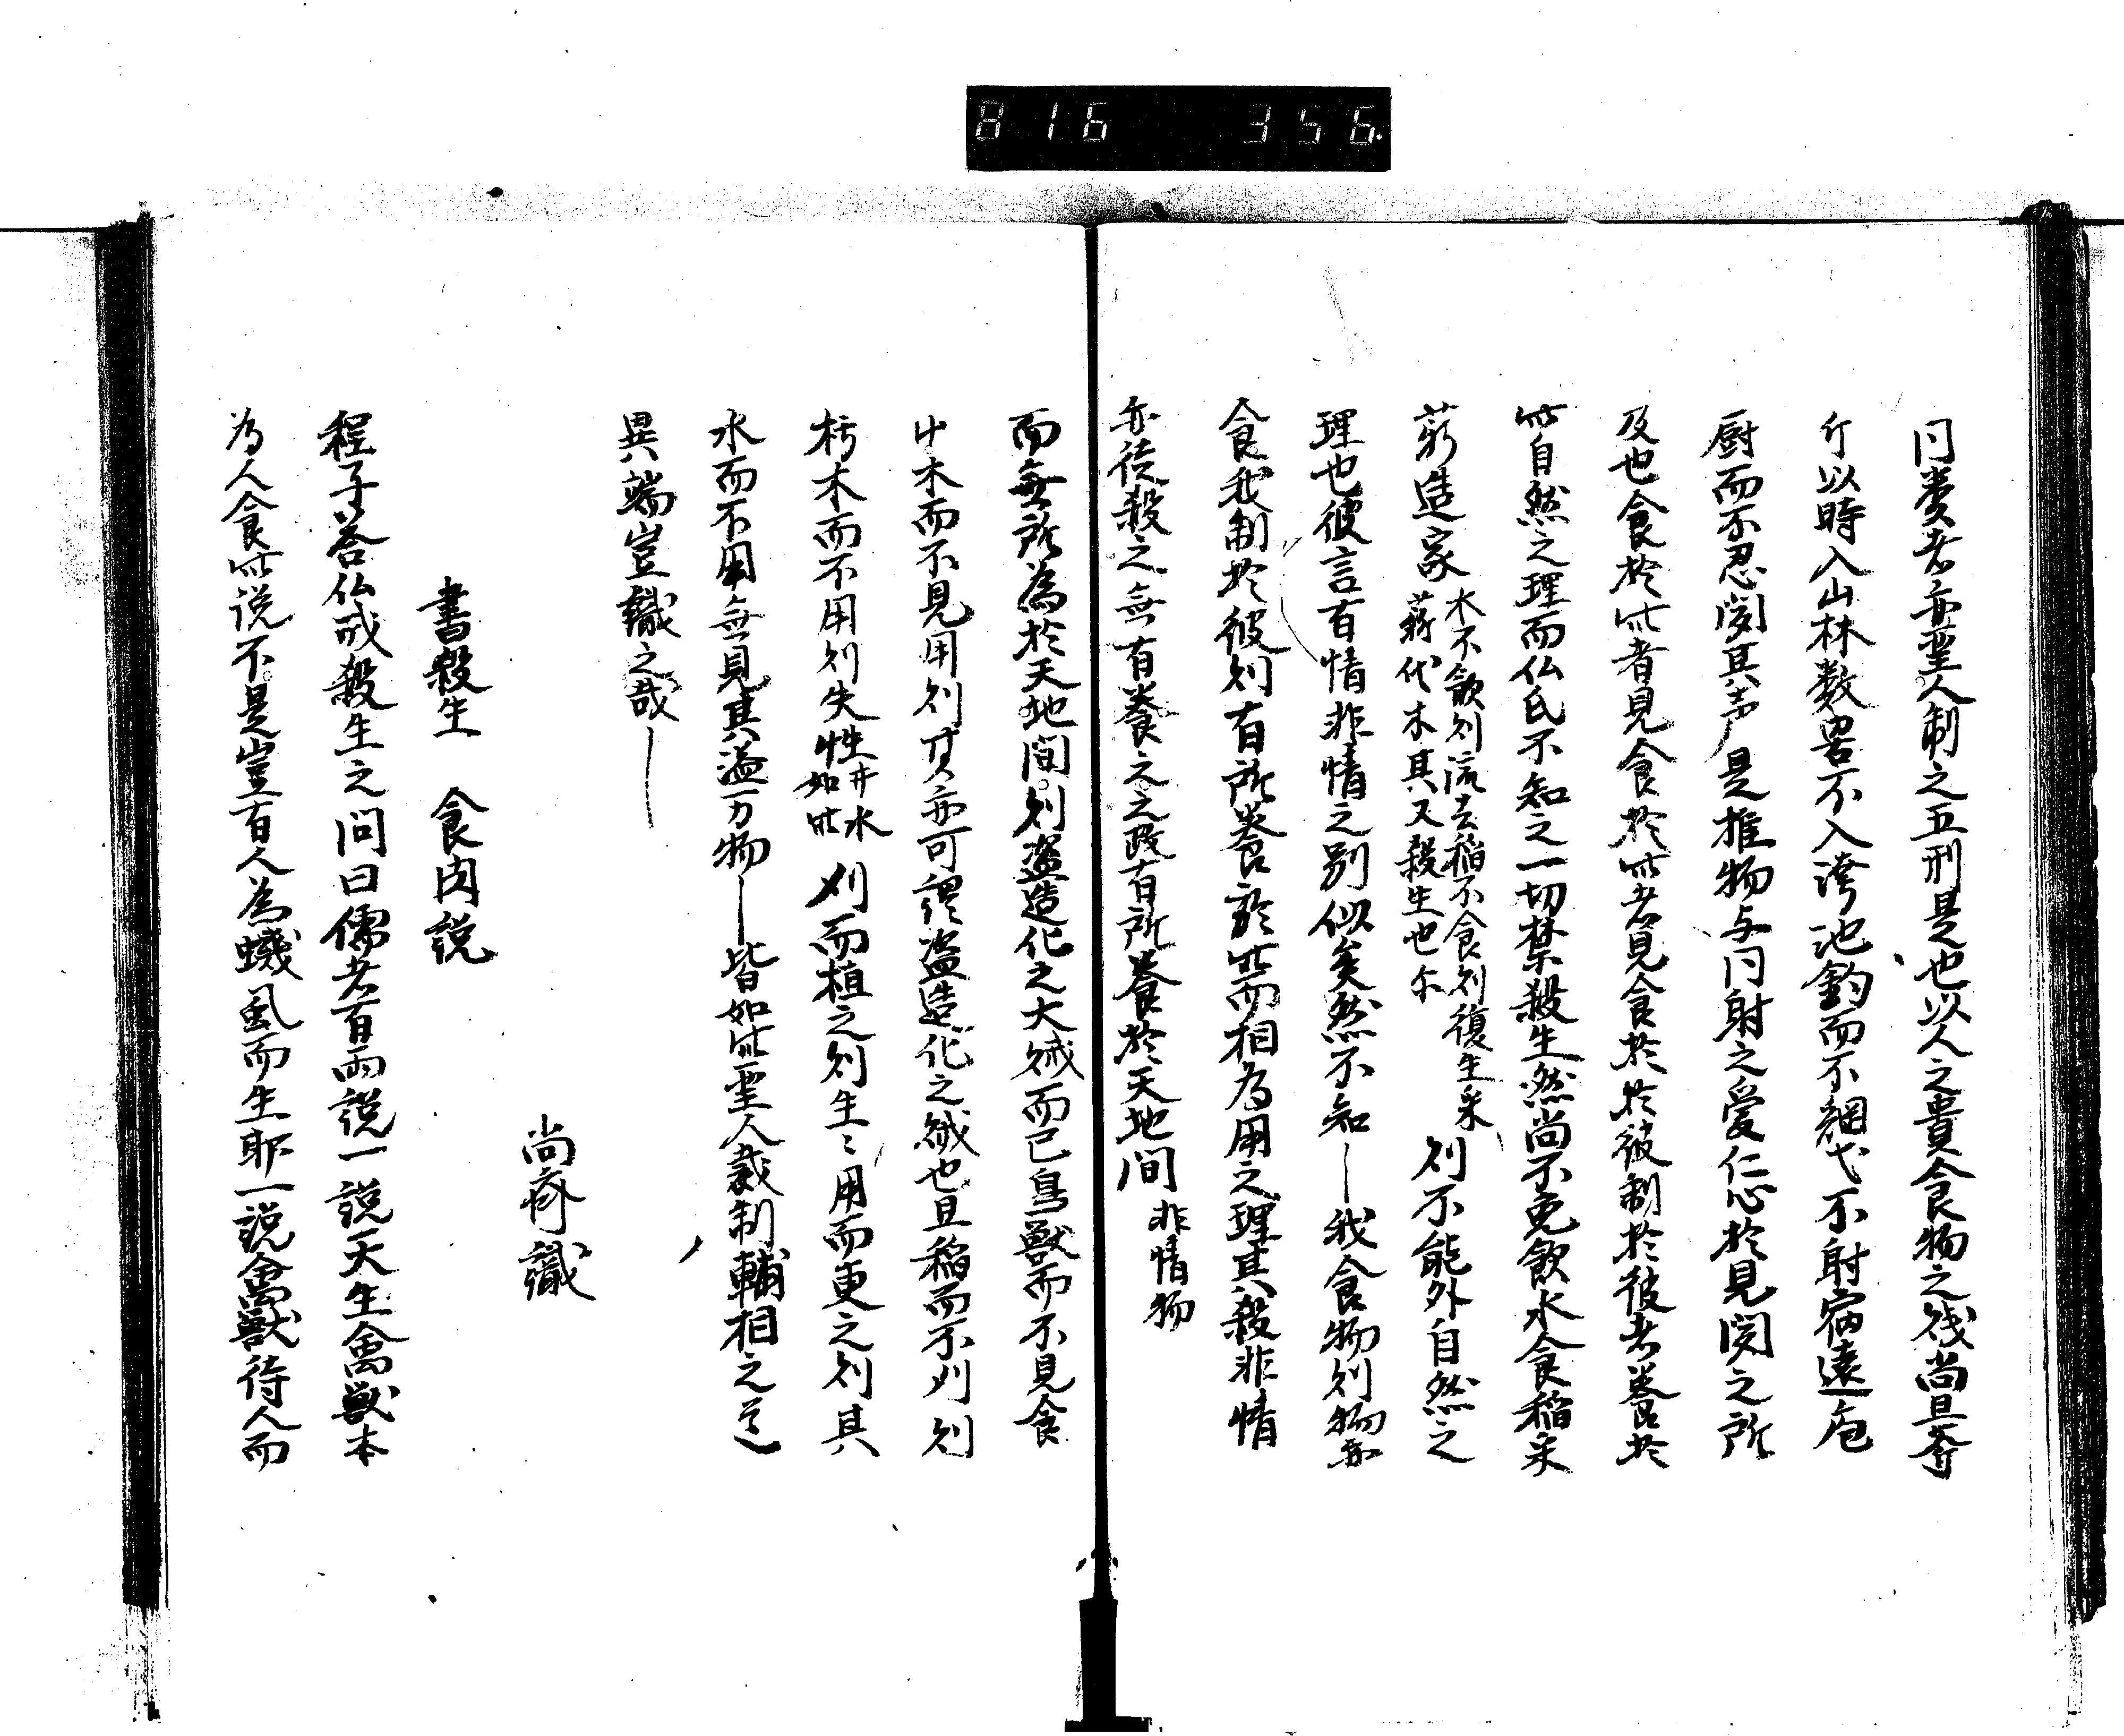 816 356
同类者亦聖人制之五刑是也以人之貴食物之残尚且奪
斤以時入山林数罟不入洿池釣而不網弋不射宿遠庖
厨而不忍聞其声是推物与同射之愛仁心於見聞之所
及也食於此者見食於此者見食於於彼制於彼者養於
此自然之理而仏氏不知之一切禁殺生然尚不免飲水食稲采
薪造家
水不飲則流去稲不食則復生采
薪伐木其又殺生也尓
則不能外自然之
理也彼言有情非情之別似矣然不知—我食物則物亦
食我制於彼則有所養於此而相為用之理其殺非情
亦徒殺之無有養之之政有所養於天地間
非情物
而無所為於天地間則盗造化之大賊而已鳥獣而不見食
艸木而不見用則其亦可謂盗造化之賊也且稲而不刈則
朽木而不用則失性
井水
如此
刈而植之則生〻用而更之則其
水而不用無見其溢万物—皆如此聖人裁制輔相之道
異端豈識之哉—
尚斎識
書殺生 食肉説
程子答仏戒殺生之問曰儒者有両説一説天生禽獣本
為人食此説不是豈有人為蟣虱而生耶一説禽獣待人而